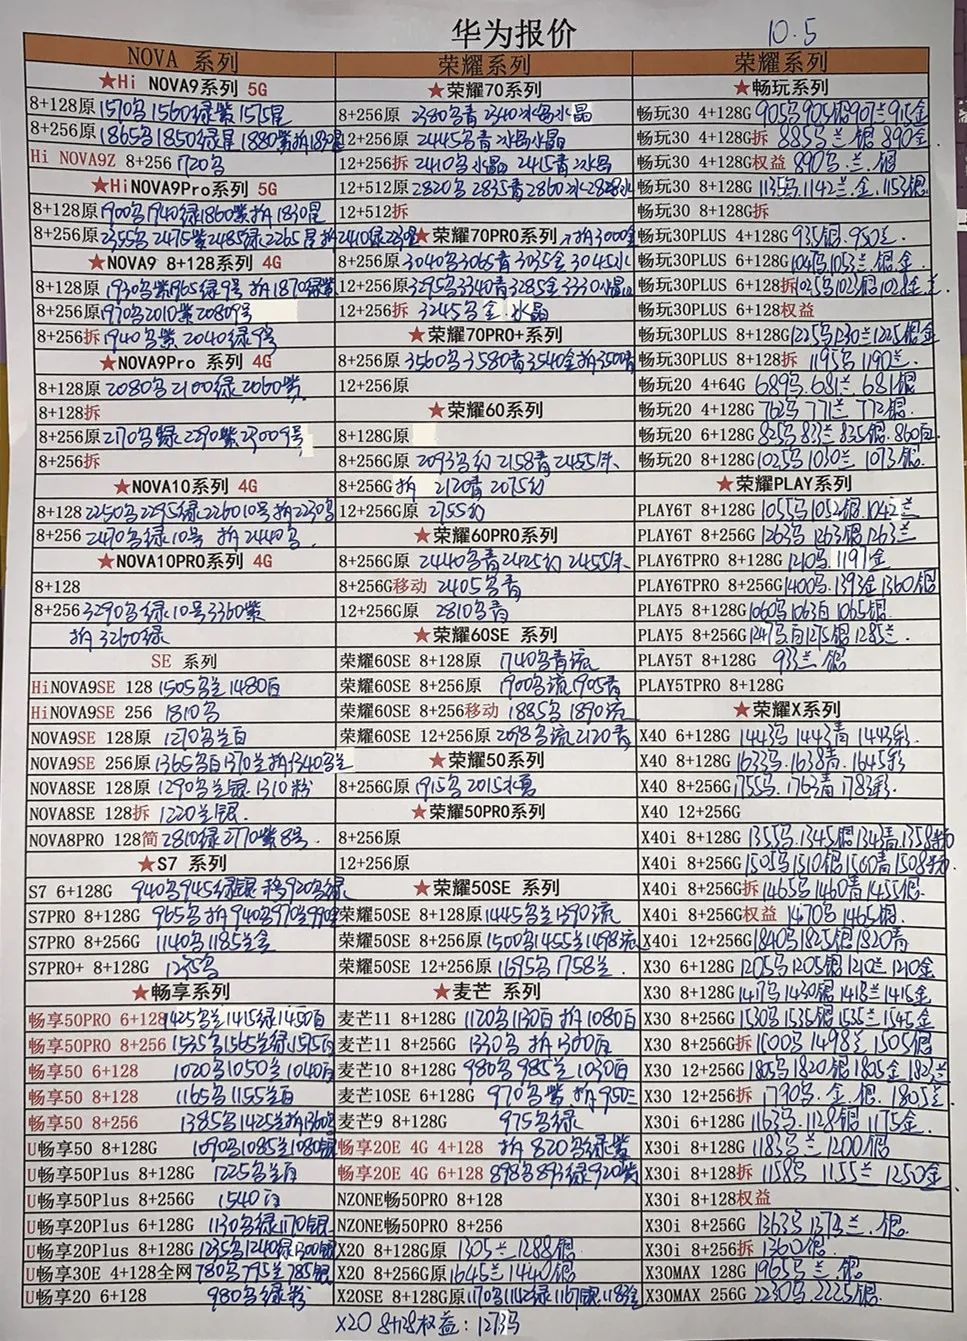 华为报价 10.5
NOVA 系列
★Hi NOVA9系列 5G
8+128原 1570乌 1560绿紫 1575星
8+256原 1865乌 1850绿星 1880紫
Hi NOVA9Z 8+256 1720乌
★HiNOVA9Pro系列 5G
8+128原 1900乌 1940绿 1860紫 拆1830星
8+256原 2355乌 2475紫 2485绿 2265星
★NOVA9 8+128系列 4G
8+128原 1930乌紫 1965绿9号 拆1870绿紫
8+256原 1970乌 2010紫 2080 9号
8+256拆 1940乌紫 2040绿9号
★NOVA9Pro 系列 4G
8+128原 2080乌 2100绿 2060紫
8+128拆
8+256原 2170乌绿 2290紫 2300 9号
8+256拆
★NOVA10系列 4G
8+128 2250乌 2295绿 2260 10号 拆2230乌
8+256 2470乌绿10号 拆2440乌
★NOVA10PRO系列 4G
8+128
8+256 3290乌绿10号 3360紫
拆3260绿
SE 系列
HiNOVA9SE 128 1505乌兰 1480白
HiNOVA9SE 256 1810乌
NOVA9SE 128原 1270乌兰白
NOVA9SE 256原 1365乌白 1370兰 拆1340乌兰
NOVA8SE 128原 1290乌兰银 1310粉
NOVA8SE 128拆 1220兰银
NOVA8PRO 128简 2810绿 2770紫8号
★S7 系列
S7 6+128G 940乌 945绿银 移920乌绿
S7PRO 8+128G 965乌 拆940乌 970兰
S7PRO 8+256G 1140乌 1185兰金
S7PRO+ 8+128G 1235乌
★畅享系列
畅享50PRO 6+128 1425乌兰 1415绿 1450白
畅享50PRO 8+256 1535乌 1565兰绿 1575白
畅享50 6+128 1020乌 1050兰 1040白
畅享50 8+128 1165乌 1155兰白
畅享50 8+256 1385乌 1425兰 拆1360
U畅享50 8+128G 1090乌 1085兰 1080银
U畅享50Plus 8+128G 1225乌兰白
U畅享50Plus 8+256G 1540白
U畅享20Plus 6+128G 1130乌绿 1170银
U畅享20Plus 8+128G 1235乌 1240绿 1300银
U畅享30E 4+128全网 780乌 795兰 785银
U畅享20 6+128 980乌绿粉
荣耀系列
★荣耀70系列
8+256原 2380乌青 2340冰岛水晶
12+256原 2445乌青 冰岛水晶
12+256拆 2410乌水晶 2415青 冰岛
12+512原 2820乌 2835青 2860冰
12+512拆
★荣耀70PRO系列 拆3000金
8+256原 3040乌 3065青 3035金 3045水
12+256原 3295乌 3340青 3285金 3330水晶
12+256拆 3245乌金 水晶
★荣耀70PRO+系列
8+256原 3560乌 3580青 3540金 拆3500青
12+256原
★荣耀60系列
8+128G原
8+256G原 2093乌幻 2158青 2455朱
8+256G 拆 2120青 2075幻
12+256G原 2755幻
★荣耀60PRO系列
8+256G原 2440乌青 2425幻 2455朱
8+256G移动 2405乌青
12+256G原 2810乌青
★荣耀60SE 系列
荣耀60SE 8+128原 1740乌青流
荣耀60SE 8+256原 1900乌流 1905青
荣耀60SE 8+256移动 1885乌 1890流
荣耀60SE 12+256原 2098乌流 2120青
★荣耀50系列
8+256G原 1915乌 2015水葛
★荣耀50PRO系列
8+256原
12+256原
★荣耀50SE 系列
荣耀50SE 8+128原 1445乌兰 1390流
荣耀50SE 8+256原 1500乌 1455兰 1498流
荣耀50SE 12+256原 1695乌 1758兰
★麦芒 系列
麦芒11 8+128G 1120乌 1130白 拆1080白
麦芒11 8+256G 1330乌 拆1300白
麦芒10 8+128G 980乌 985兰 1030白
麦芒10SE 6+128G 970乌紫 拆950兰
麦芒9 8+128G 975乌绿
畅享20E 4G 4+128 拆820乌绿紫
畅享20E 4G 6+128 898乌 893绿 920紫
NZONE畅50PRO 8+128
NZONE畅50PRO 8+256
X20 8+128G原 1305兰 1288银
X20 8+256G原 1645兰 1440银
X20SE 8+128G原 1170乌 1142绿 1167银 118金
X20 8+128权益：1273乌
荣耀系列
★畅玩系列
畅玩30 4+128G 905乌 905银 907兰 915金
畅玩30 4+128G拆 885乌兰银 890金
畅玩30 4+128G权益 890乌.兰.银
畅玩30 8+128G 1135乌 1142兰.金 1153银
畅玩30 8+128G拆
畅玩30PLUS 4+128G 935银.950兰
畅玩30PLUS 6+128G 1047乌 1053兰 银金
畅玩30PLUS 6+128拆 1025乌 1025银 1028金兰
畅玩30PLUS 6+128权益
畅玩30PLUS 8+128G 1225乌 1230兰 1225银金
畅玩30PLUS 8+128拆 1195乌 1190兰
畅玩20 4+64G 689乌.681兰 681银
畅玩20 4+128G 762乌 771兰 772银
畅玩20 6+128G 825乌 833兰 835银.860白
畅玩20 8+128G 1025乌 1030兰 1073银
★荣耀PLAY系列
PLAY6T 8+128G 1055乌 1052银 1042兰
PLAY6T 8+256G 1263乌 1263银 1263兰
PLAY6TPRO 8+128G 1210乌 1197金
PLAY6TPRO 8+256G 1400乌.1393金 1360银
PLAY5 8+128G 1060乌 1063白 1065银
PLAY5 8+256G 1247乌白 1275银 1285兰
PLAY5T 8+128G 933兰 银
PLAY5TPRO 8+128G
★荣耀X系列
X40 6+128G 1443乌 1443青 1443彩
X40 8+128G 1633乌.1638青 1645彩
X40 8+256G 1755乌.1763青 1783彩
X40 12+256G
X40i 8+128G 1355乌.1345银 1343青.1358粉
X40i 8+256G 1505乌 1510银 1560青 1508粉
X40i 8+256G拆 1465乌 1460青 1455银
X40i 8+256G权益 1470乌 1465银
X40i 12+256G 1840乌 1825银 1820青
X30 6+128G 1205乌 1205银 1210兰 1210金
X30 8+128G 1417乌 1430银 1413兰 1415金
X30 8+256G 1530乌 1535银 1535兰 1545金
X30 8+256G拆 1500乌 1498兰 1505银
X30 12+256G 1805乌 1820银 1805金 1823兰
X30 12+256拆 1790乌.金.银.1803兰
X30i 6+128G 1163乌.1128银 1175金
X30i 8+128G 1183兰 1200银
X30i 8+128拆 1158乌 1155兰 1250金
X30i 8+128权益
X30i 8+256G 1363乌 1372兰.银
X30i 8+256拆 1360银
X30MAX 128G 1965乌兰 银
X30MAX 256G 2230乌.2225银